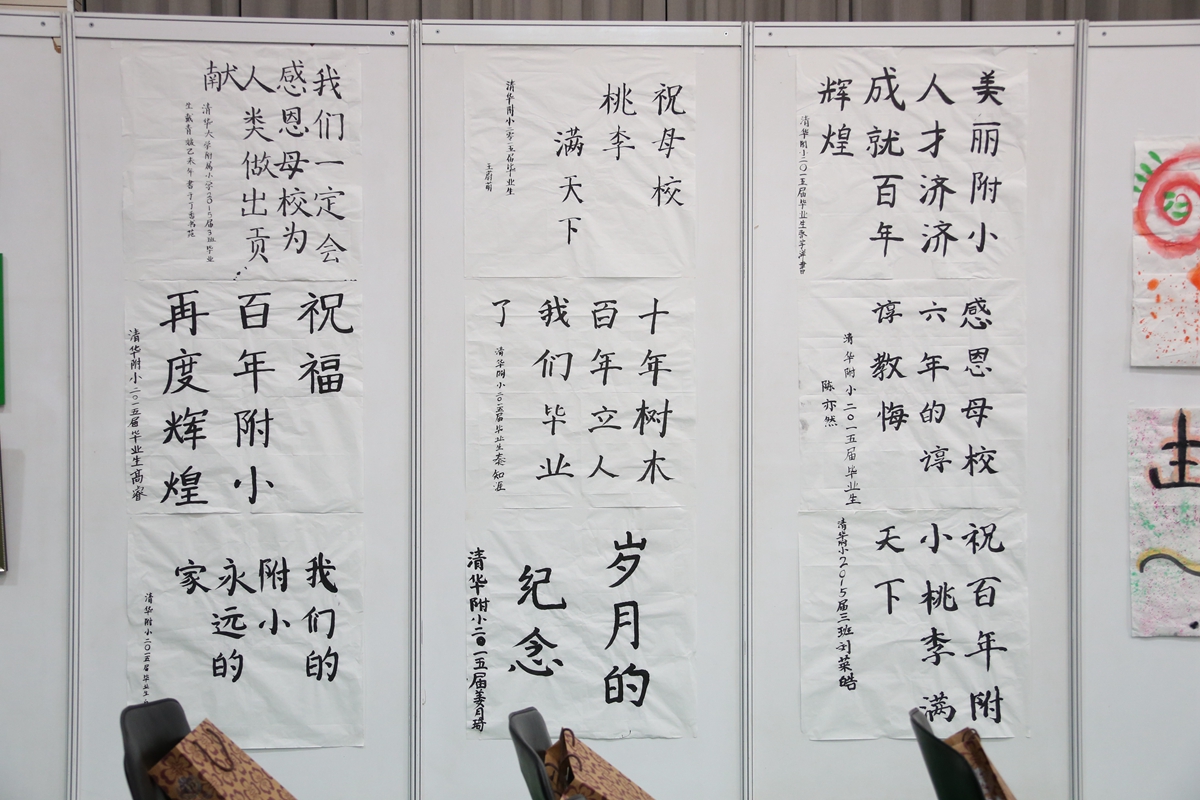 我们一定会
感恩母校为
人类做出贡
献
清华大学附属小学2015届3班毕业
祝福
百年附小
再度辉煌
清华附小二〇一五届毕业生高睿
我们的
附小
永远的
家
清华附小二〇一五届毕业生
祝母校
桃李
满天下
清华附小二零一五届毕业生
十年树木
百年立人
我们毕业
了
清华附小二〇一五届毕业生秦知涯
岁月的
纪念
清华附小二〇一五届姜月琦
美丽附小
人才济济
成就百年
辉煌
清华附小二〇一五届毕业生张宇洋书
感恩母校
六年的谆
谆教悔
清华附小二〇一五届毕业生
陈亦然
祝百年附
小桃李满
天下
清华附小2015届三班刘菜皓